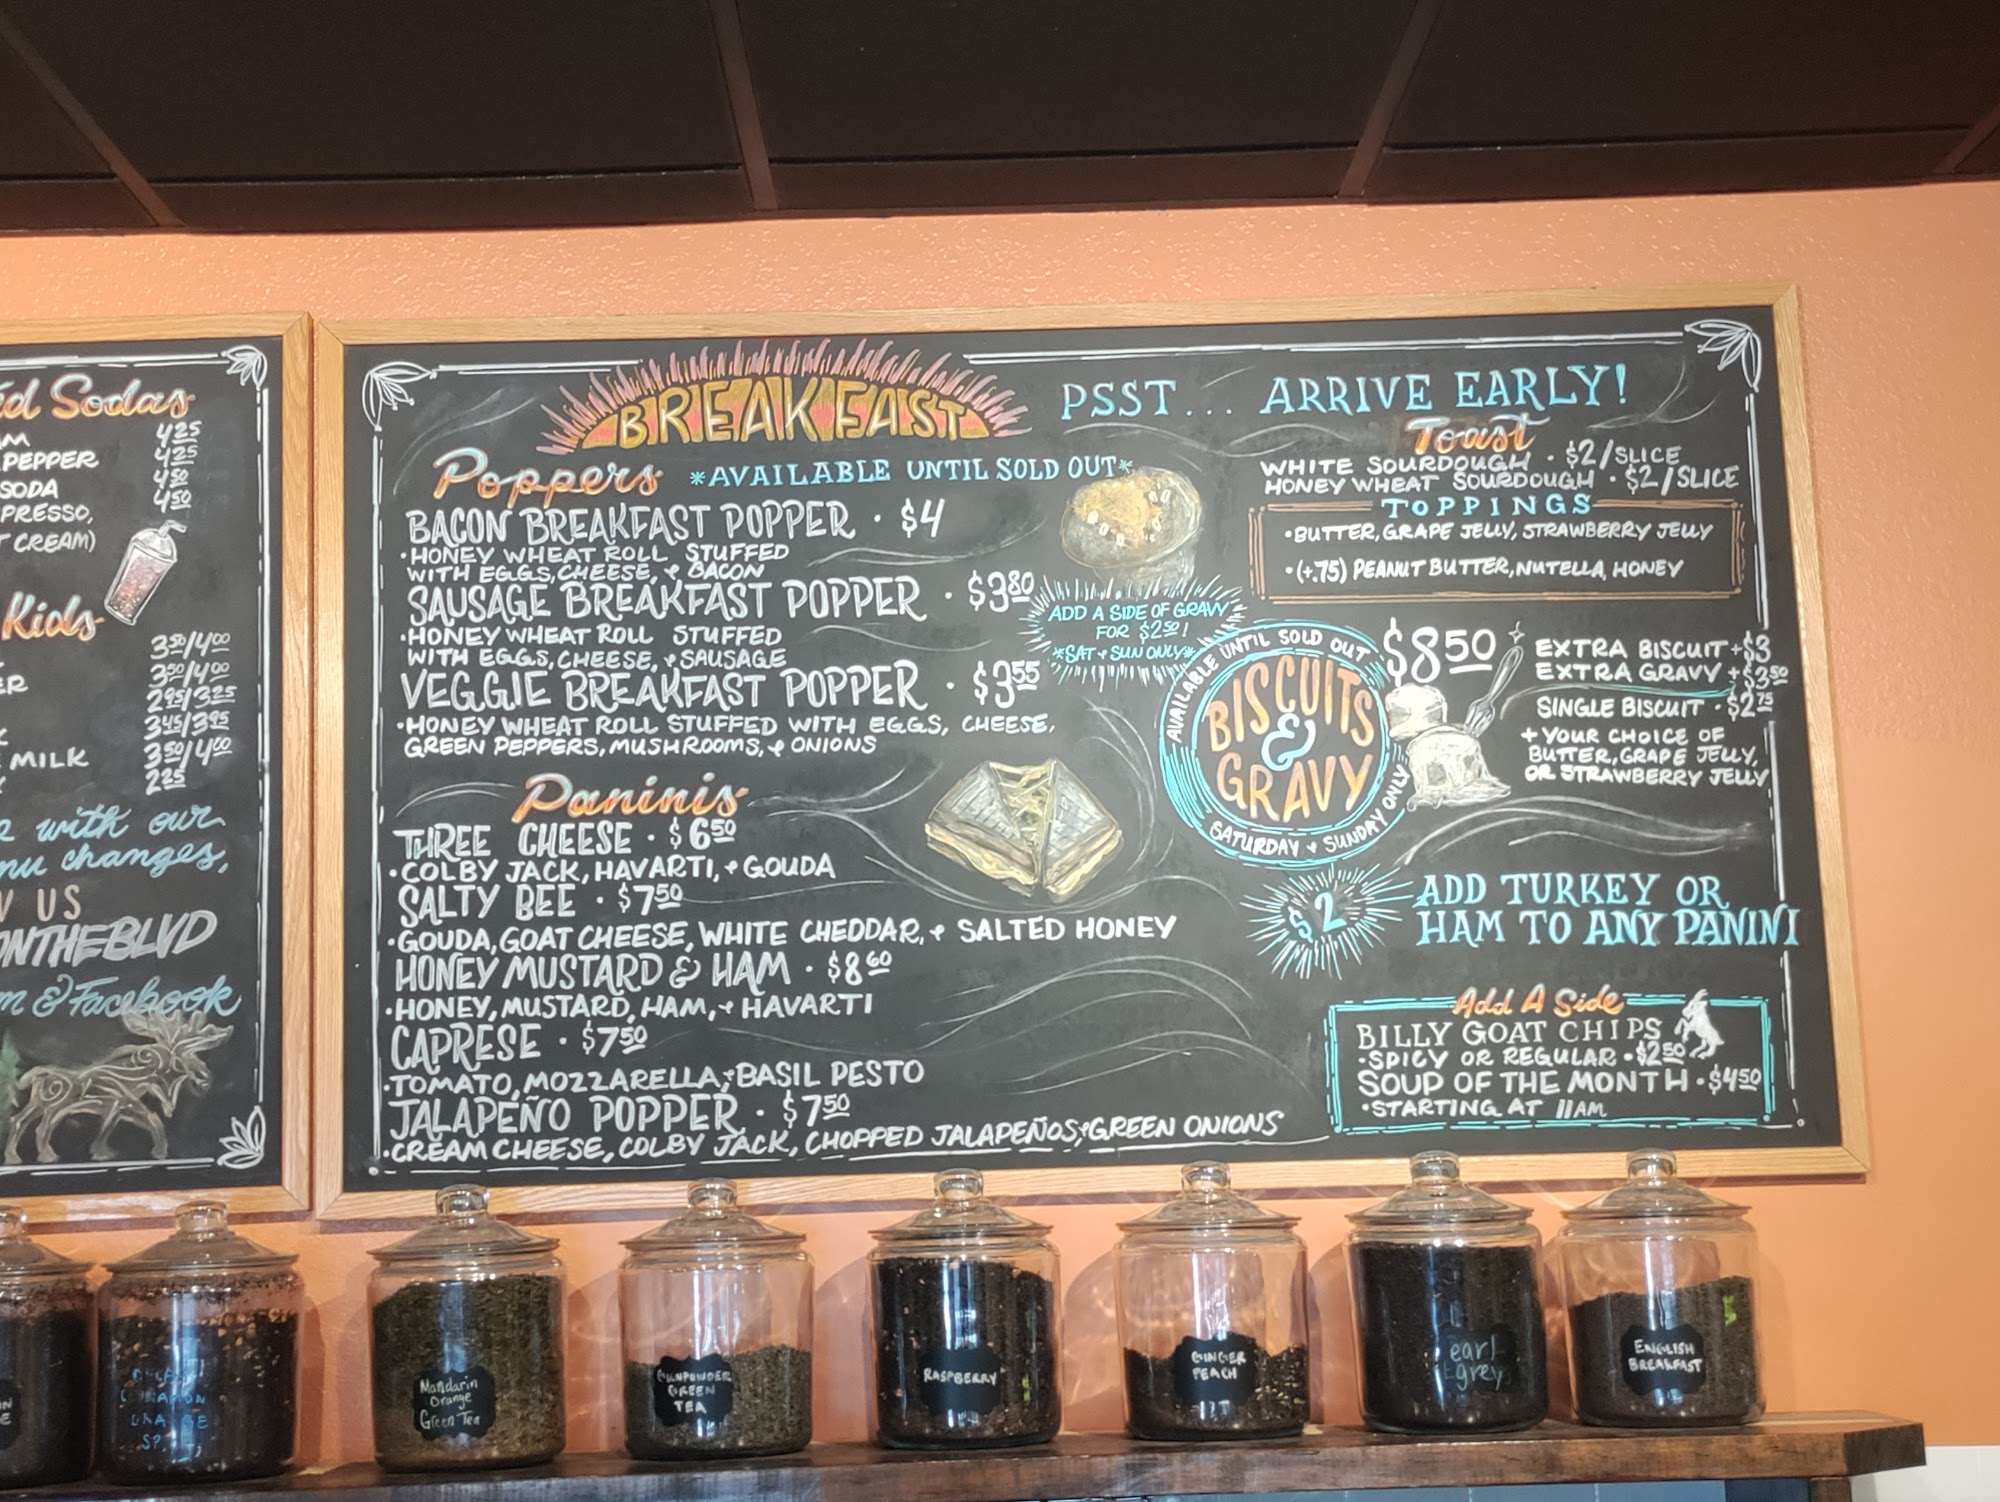 Sodas
4 25
PEPPER 4 25
SODA 4 50
4 50
CREAM)
Kids
3 50/4 00
3 50/4 00
2 95/3 25
3 45/3 95
MILK 3 50/4 00
2 25
with our
changes,
US
ONTHEBLVD
& Facebook
BREAKFAST
PSST... ARRIVE EARLY!
Poppers *AVAILABLE UNTIL SOLD OUT*
BACON BREAKFAST POPPER · $4
·HONEY WHEAT ROLL STUFFED
WITH EGGS, CHEESE, & BACON
SAUSAGE BREAKFAST POPPER · $3 80
·HONEY WHEAT ROLL STUFFED
WITH EGGS, CHEESE, & SAUSAGE
VEGGIE BREAKFAST POPPER · $3 55
·HONEY WHEAT ROLL STUFFED WITH EGGS, CHEESE,
GREEN PEPPERS, MUSHROOMS, & ONIONS
ADD A SIDE OF GRAVY
FOR $2 50!
*SAT & SUN ONLY*
Paninis
THREE CHEESE · $6 50
·COLBY JACK, HAVARTI, & GOUDA
SALTY BEE · $7 50
·GOUDA, GOAT CHEESE, WHITE CHEDDAR, & SALTED HONEY
HONEY MUSTARD & HAM · $8 60
·HONEY, MUSTARD, HAM, & HAVARTI
CAPRESE · $7 50
·TOMATO, MOZZARELLA, & BASIL PESTO
JALAPEÑO POPPER · $7 50
·CREAM CHEESE, COLBY JACK, CHOPPED JALAPEÑOS, & GREEN ONIONS
Toast
WHITE SOURDOUGH · $2/SLICE
HONEY WHEAT SOURDOUGH · $2/SLICE
TOPPINGS
·BUTTER, GRAPE JELLY, STRAWBERRY JELLY
·(+.75) PEANUT BUTTER, NUTELLA, HONEY
AVAILABLE UNTIL SOLD OUT
BISCUITS
&
GRAVY
SATURDAY & SUNDAY ONLY
$8 50
EXTRA BISCUIT +$3
EXTRA GRAVY +$3 50
SINGLE BISCUIT · $2 75
+ YOUR CHOICE OF
BUTTER, GRAPE JELLY,
OR STRAWBERRY JELLY
$2
ADD TURKEY OR
HAM TO ANY PANINI
Add A Side
BILLY GOAT CHIPS
·SPICY OR REGULAR · $2 50
SOUP OF THE MONTH · $4 50
·STARTING AT 11AM
Mandarin
Orange
Green Tea
GUNPOWDER
GREEN
TEA
RASPBERRY
GINGER
PEACH
earl
grey
ENGLISH
BREAKFAST